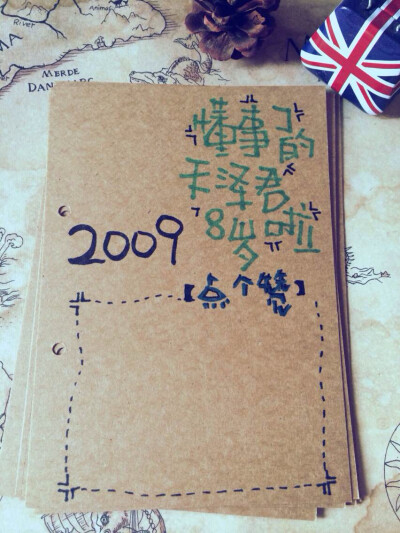 River
MERDE
懂事了的
天泽君
8岁啦
2009
【点个赞】